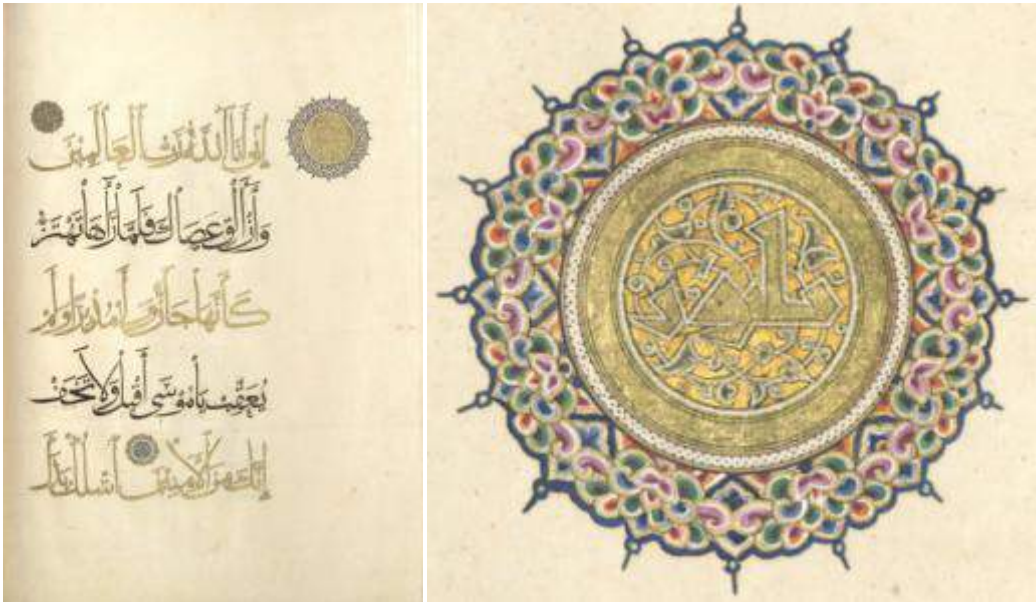 إني أنا الله رب العالمين
وأن ألق عصاك فلما رآها تهتز
كأنها جان ولى مدبرا ولم
يعقب يا موسى أقبل ولا تخف
إنك من الآمنين اسلك يدك